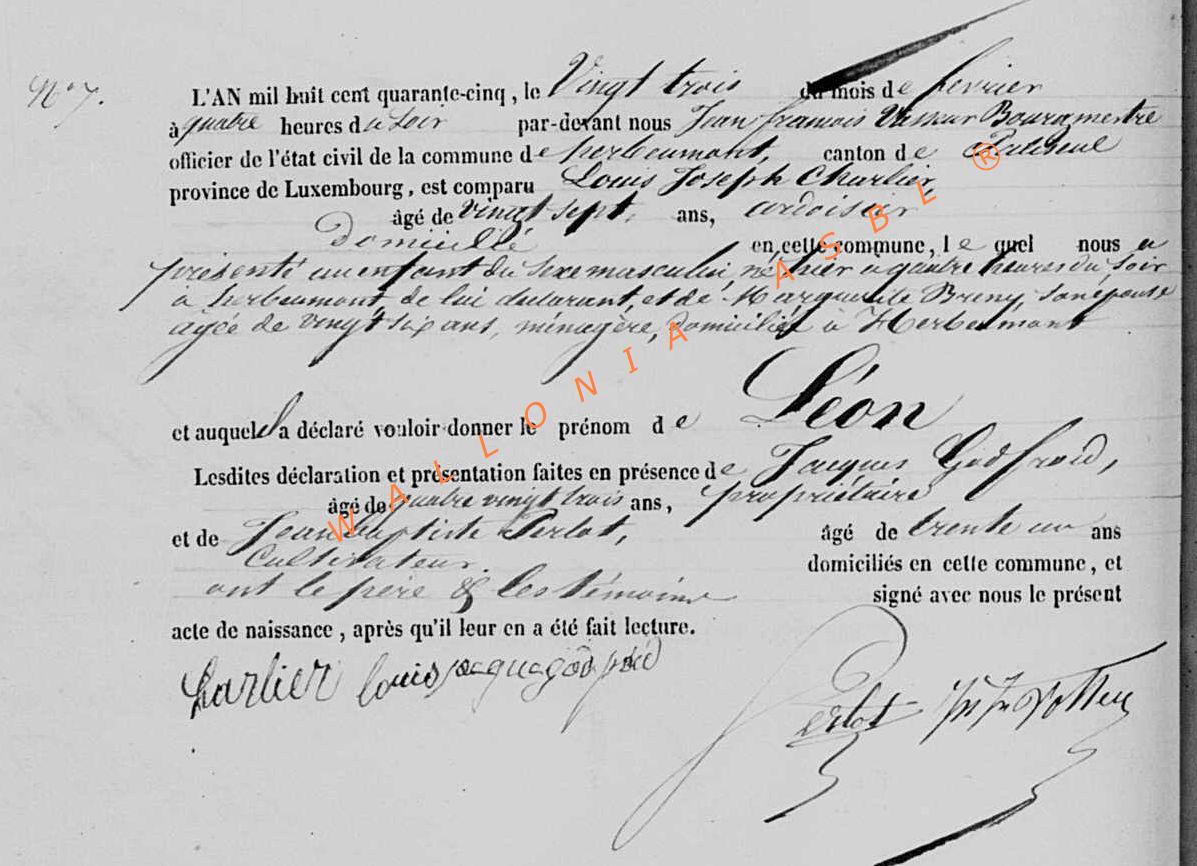 N° 7.
L'AN mil huit cent quarante-cinq, le Vingt trois du mois de février
à quatre heures du soir par-devant nous Jean françois Bourgmestre
officier de l'état civil de la commune de herbeumont, canton de
province de Luxembourg, est comparu Louis Joseph Charlier,
âgé de vingt sept, ans, ardoisier
Domicilié en cette commune, lequel nous a
présenté un enfant du sexe masculin, né hier à quatre heures du soir
a herbeumont, de lui déclarant, et de Marguerite Breny, son épouse
agée de vingt six ans, ménagère, domiciliée à Herbeumont
et auquel il a déclaré vouloir donner le prénom de Léon
Lesdites déclaration et présentation faites en présence de Jacques Godfroid,
âgé de quatre vingt trois ans, propriétaire
et de Jean baptiste Perlot, âgé de trente un ans
Cultivateur. domiciliés en cette commune, et
ont le père & les témoins signé avec nous le présent
acte de naissance, après qu'il leur en a été fait lecture.
Charlier louis
Perlot
WALLONIA ASBL ®